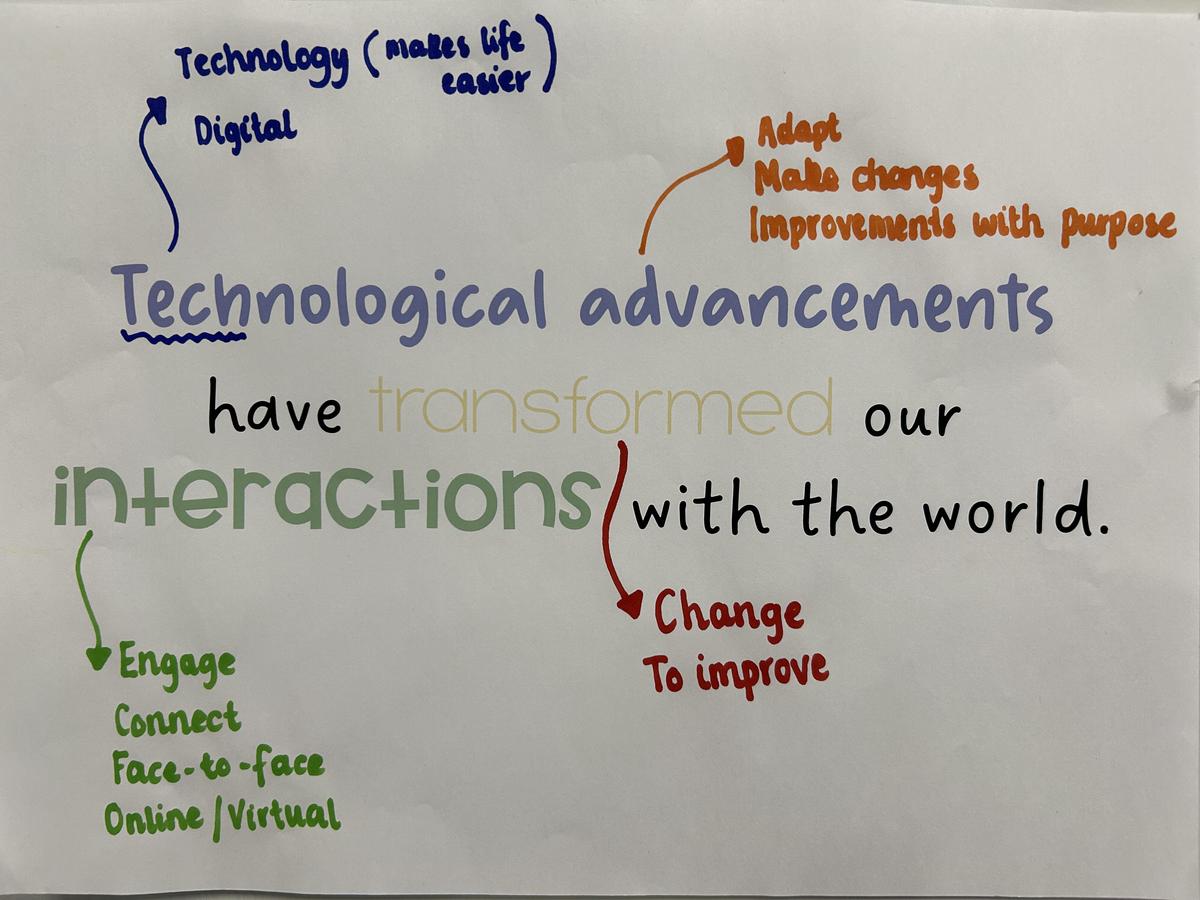 Technology (makes life
easier)
Digital
Adapt
Make changes
Improvements with purpose
Technological advancements
have transformed our
interactions with the world.
Change
To improve
Engage
Connect
Face-to-face
Online/Virtual